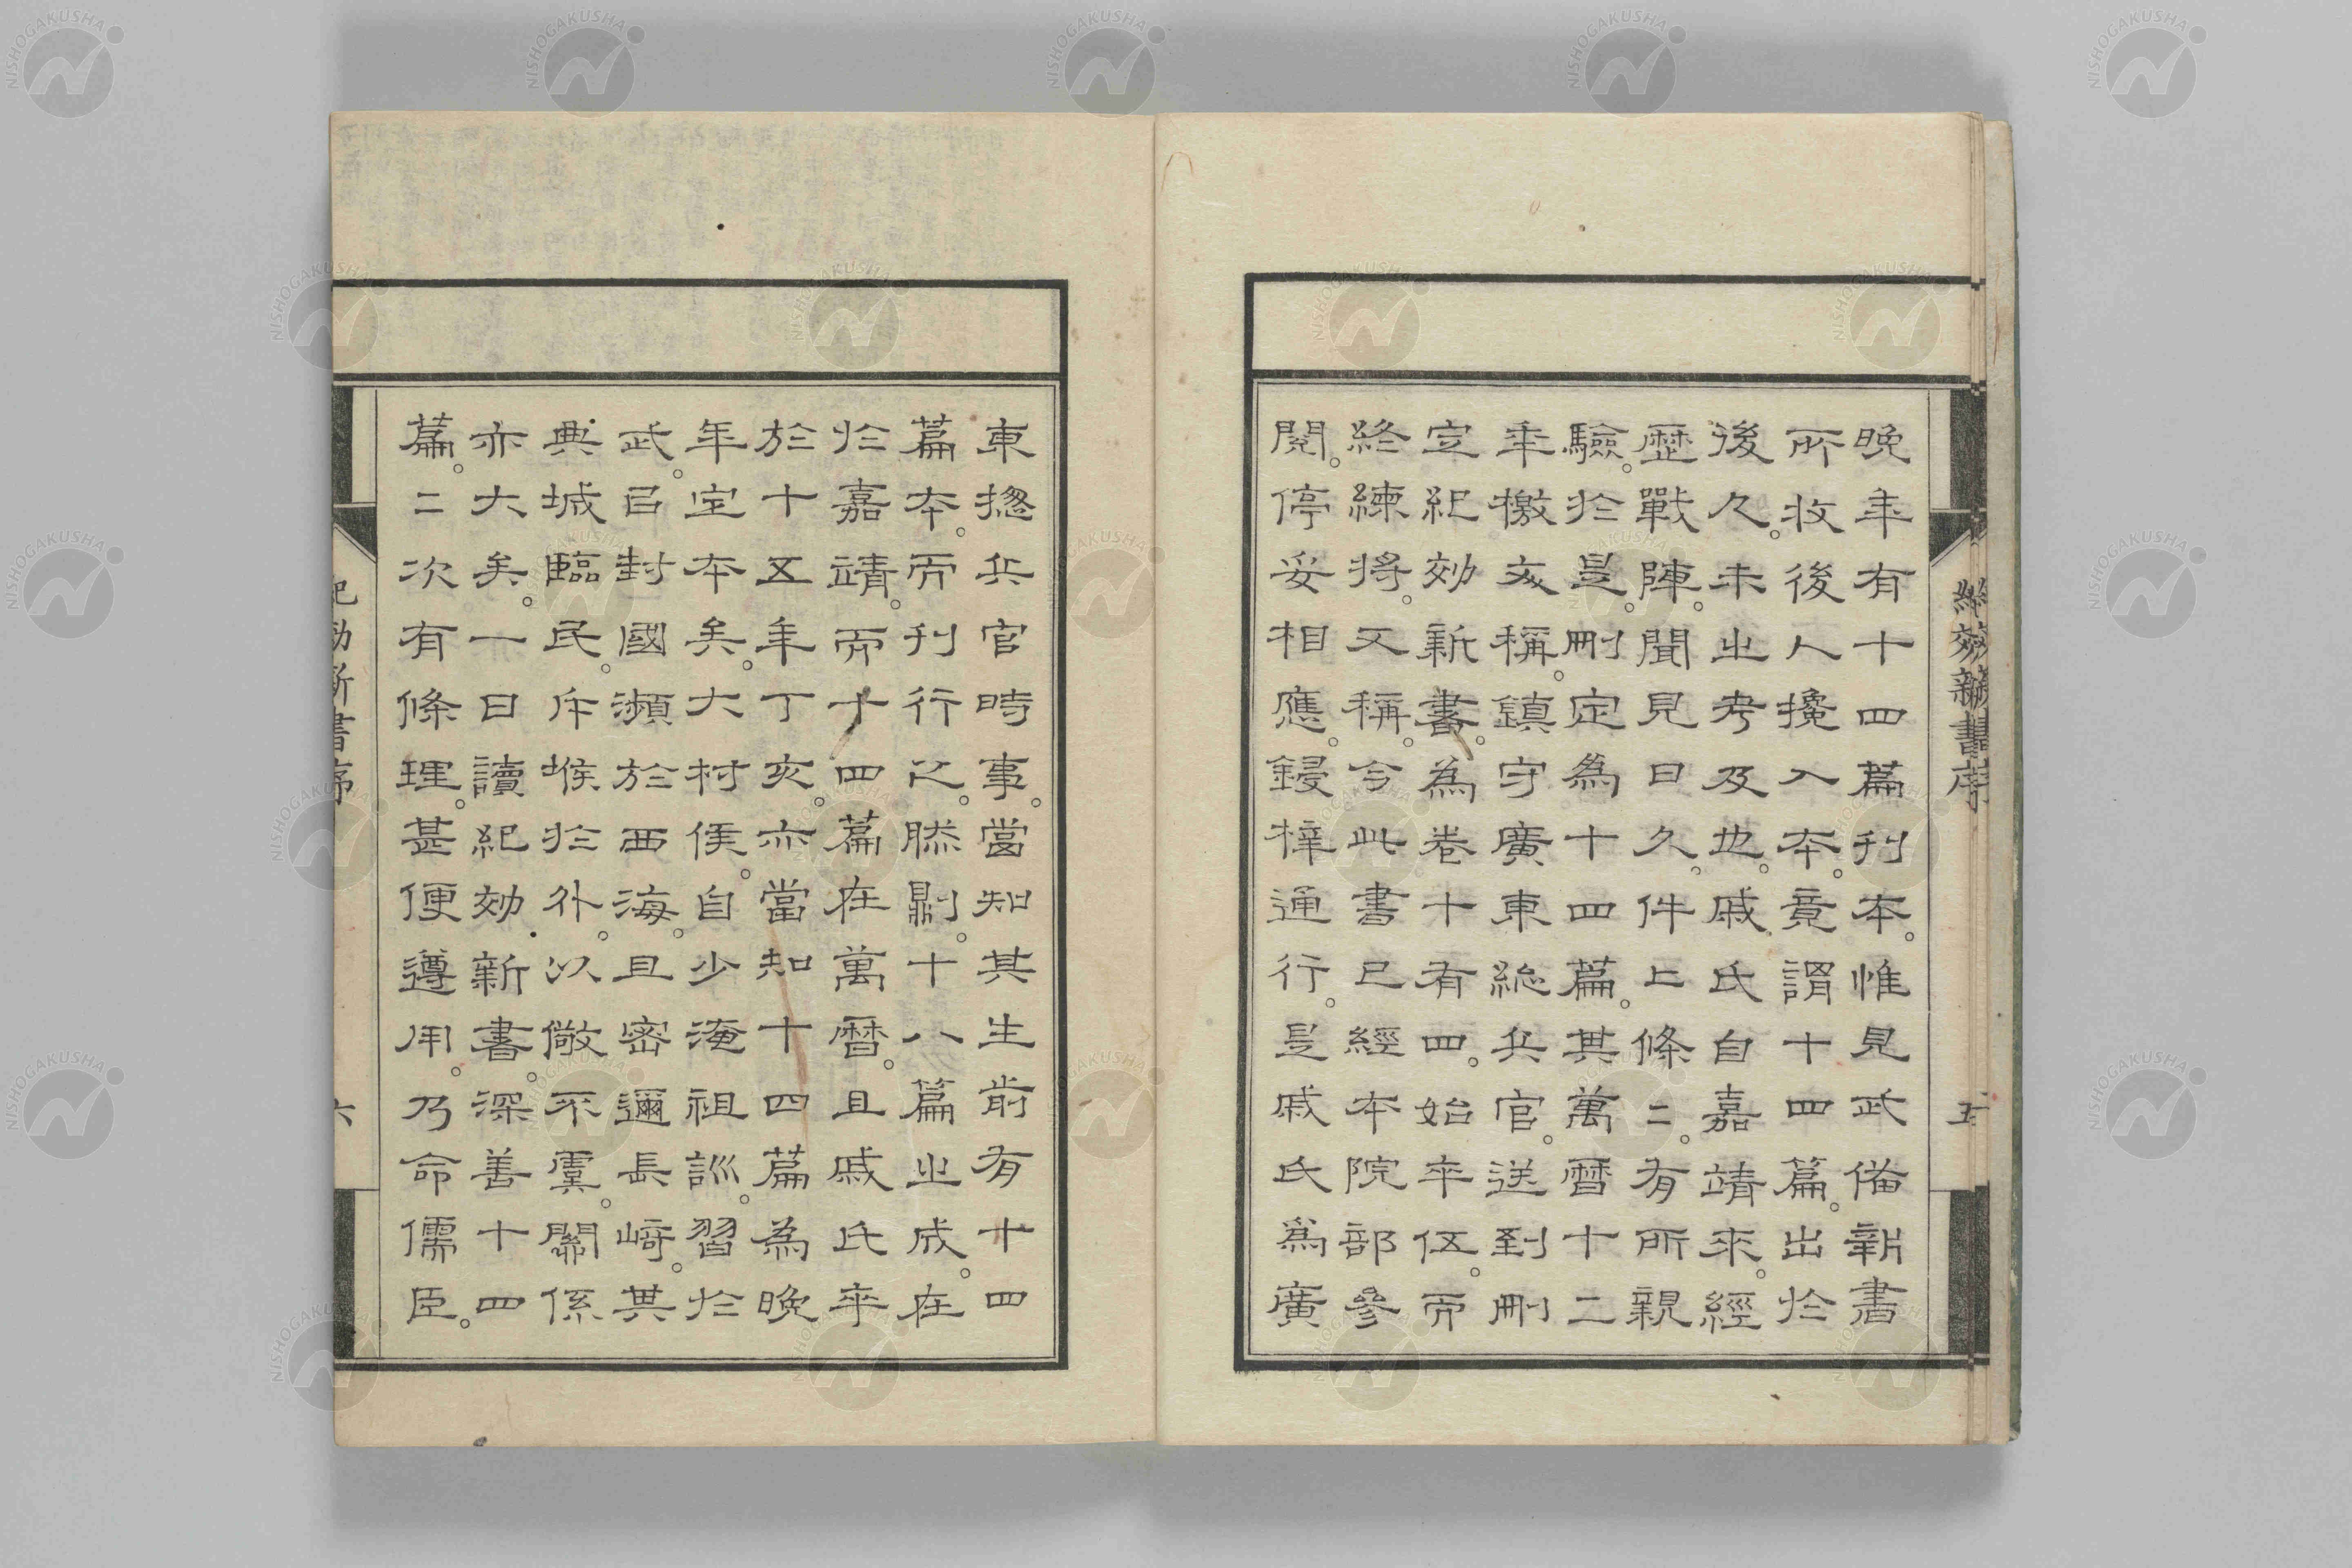 晚年有十四篇刊本。惟見武備新書
所收後人攙入本。竟謂十四篇。出於
後久。未之考及也。戚氏自嘉靖來。經
歷戰陣。聞見日久。件上條二。有所親
驗。於是。刪定為十四篇。其萬曆十二
年檄文稱。鎮守廣東総兵官。送到刪
定紀効新書。為卷十有四。始卒伍。而
終練將。又稱。今此書已經本院部參
閱。停妥相應。鋟梓通行。是戚氏為廣
紀効新書序
五
東摠兵官時事。當知其生前有十四
篇本。而刊行之。然則。十八篇之成。在
於嘉靖。而十四篇在萬曆。且戚氏卒
於十五年丁亥。亦當知十四篇為晚
年定本矣。大村侯。自少淹祖訓。習於
武。㠯封國瀕於西海。且密邇長崎。其
典城臨民。斥堠於外。以儆不虞。關係
亦大矣。一日讀紀効新書。深善十四
篇。二次有條理。甚便遵用。乃命儒臣。
紀効新書序
六
NISHOGAKUSHA